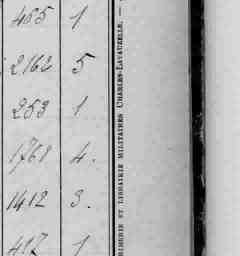 455 1
2162 5
253 1
1761 4.
1412 3.
417 1
RIMERIE ET LIBRAIRIE MILITAIRES CHARLES-LAVAUZELLE. —